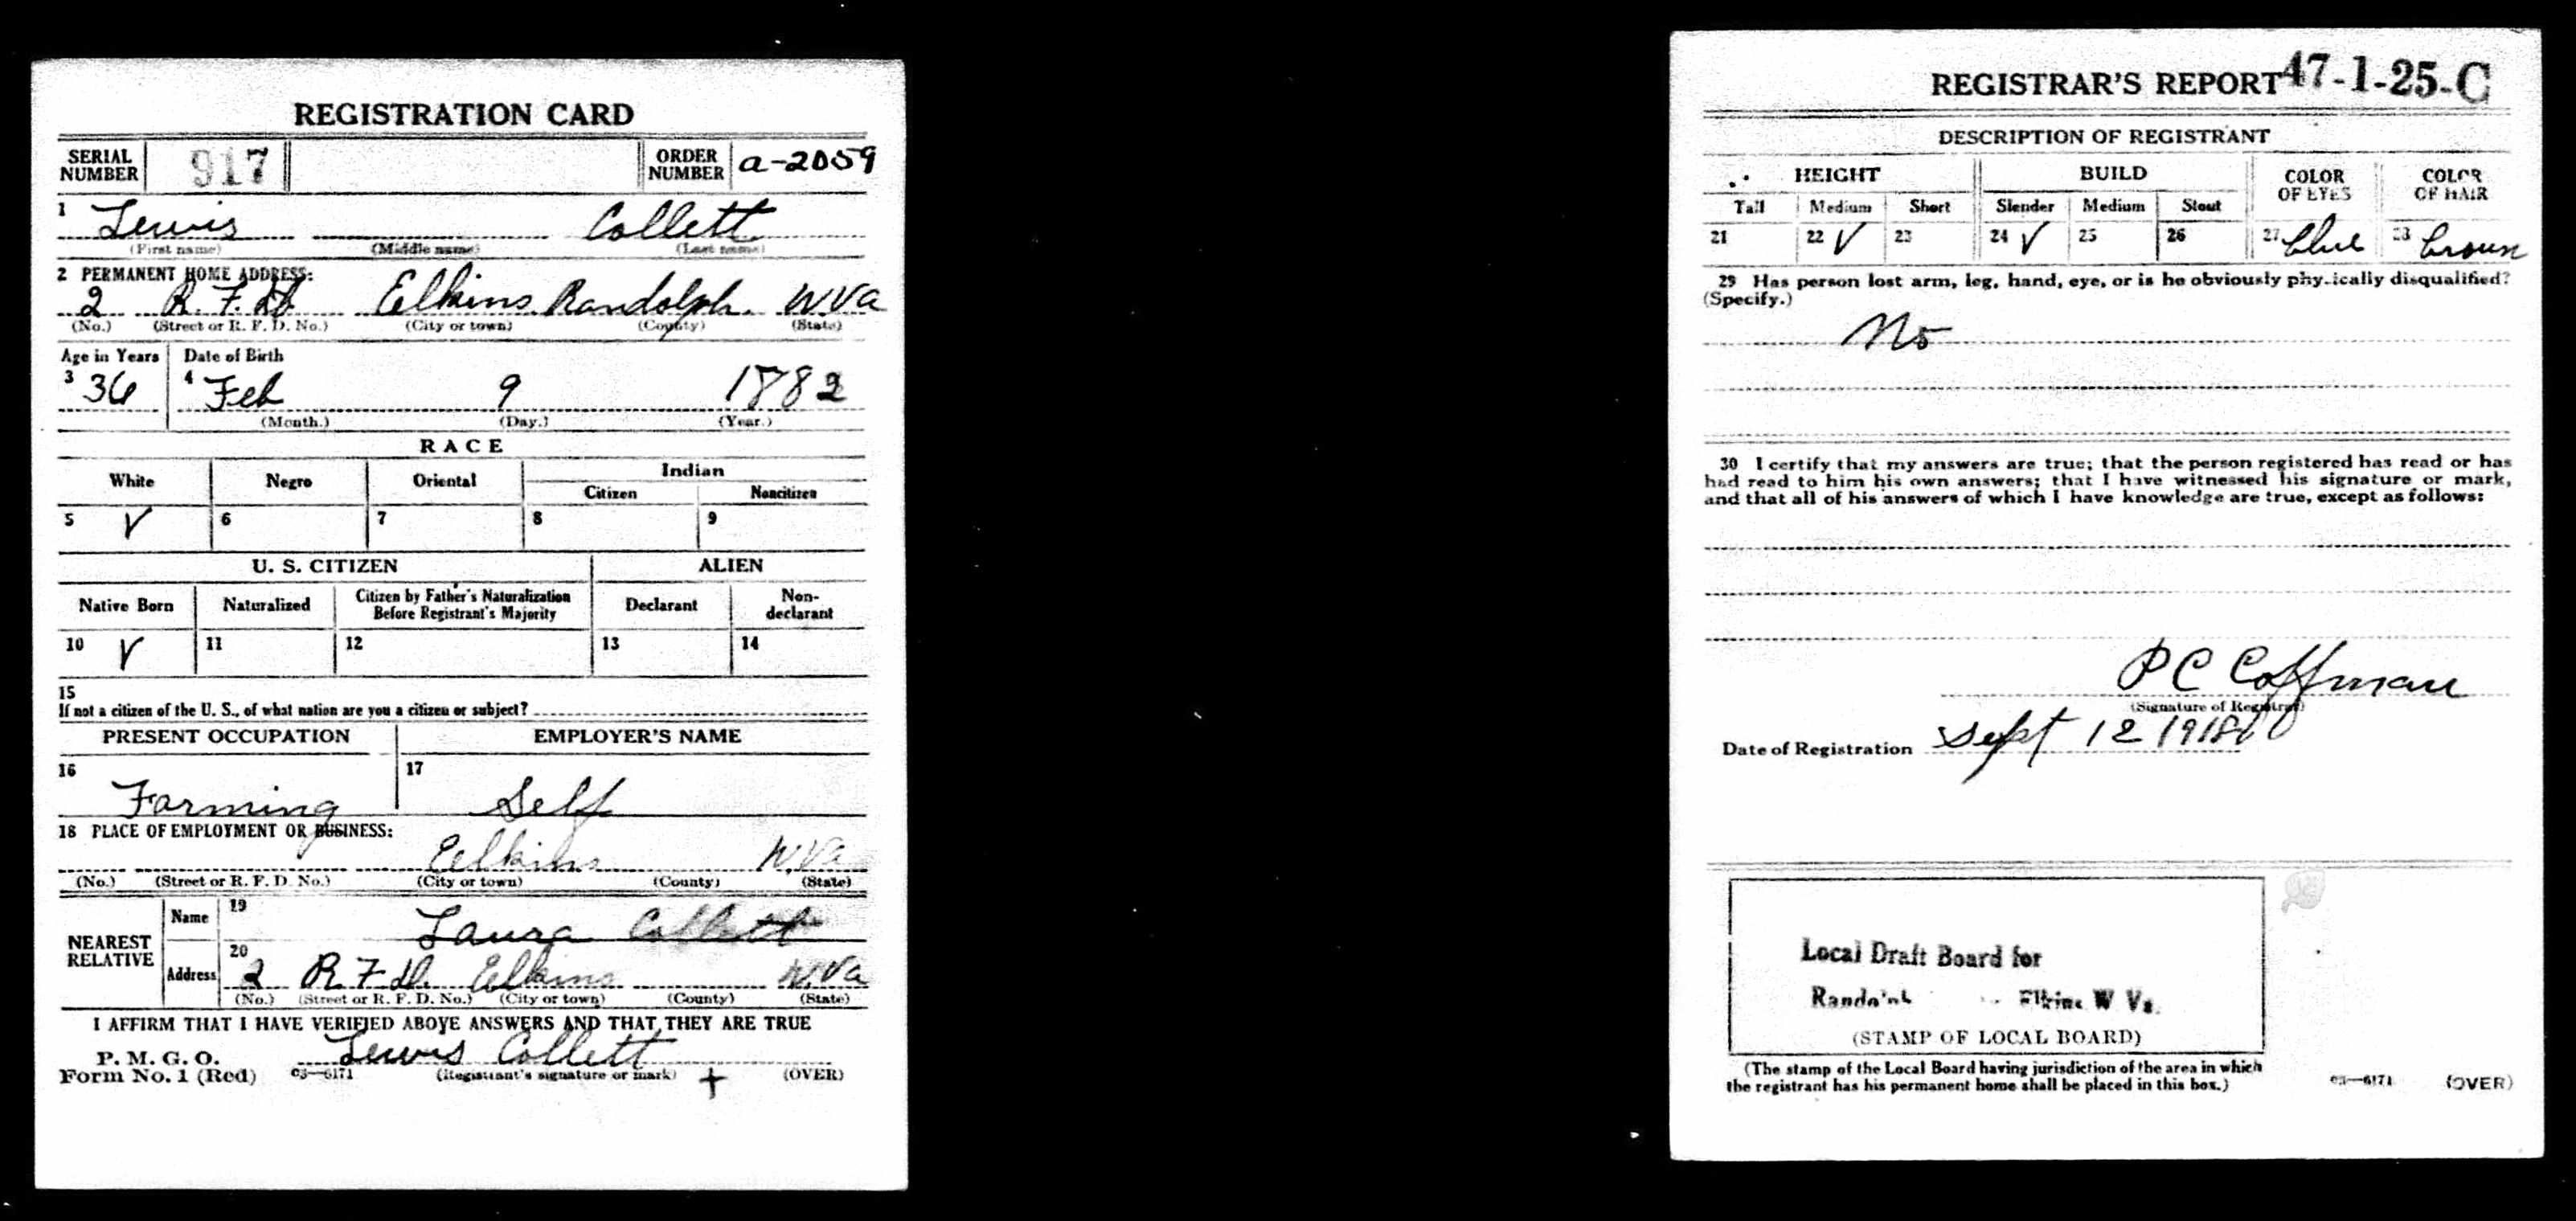 REGISTRATION CARD
SERIAL NUMBER 917 ORDER NUMBER a-2059
1 Lewis Collett
(First name) (Middle name) (Last name)
2 PERMANENT HOME ADDRESS:
2 R.F.D. Elkins Randolph. W.Va
(No.) (Street or R. F. D. No.) (City or town) (County) (State)
Age in Years Date of Birth
3 36 4 Feb 9 1882
(Month.) (Day.) (Year.)
RACE
White Negro Oriental Indian
Citizen Noncitizen
5 V 6 7 8 9
U. S. CITIZEN ALIEN
Native Born Naturalized Citizen by Father's Naturalization Before Registrant's Majority Declarant Non-declarant
10 V 11 12 13 14
15
If not a citizen of the U. S., of what nation are you a citizen or subject?
PRESENT OCCUPATION EMPLOYER'S NAME
16 Farming 17 Self
18 PLACE OF EMPLOYMENT OR BUSINESS:
Elkins W.Va
(No.) (Street or R. F. D. No.) (City or town) (County) (State)
NEAREST RELATIVE
Name 19 Laura Collett
Address 20 2 R.F.D. Elkins W.Va
(No.) (Street or R. F. D. No.) (City or town) (County) (State)
I AFFIRM THAT I HAVE VERIFIED ABOVE ANSWERS AND THAT THEY ARE TRUE
P. M. G. O.
Form No. 1 (Red) 03—6171 Lewis Collett
(Registrant's signature or mark) + (OVER)
REGISTRAR'S REPORT 47-1-25-C
DESCRIPTION OF REGISTRANT
HEIGHT BUILD COLOR OF EYES COLOR OF HAIR
Tall Medium Short Slender Medium Stout
21 22 V 23 24 V 25 26 27 blue 28 brown
29 Has person lost arm, leg, hand, eye, or is he obviously physically disqualified?
(Specify.)
No
30 I certify that my answers are true; that the person registered has read or has
had read to him his own answers; that I have witnessed his signature or mark,
and that all of his answers of which I have knowledge are true, except as follows:
P C Coffman
(Signature of Registrar)
Date of Registration Sept 12 1918
Local Draft Board for
Randolph Elkins W Va.
(STAMP OF LOCAL BOARD)
(The stamp of the Local Board having jurisdiction of the area in which
the registrant has his permanent home shall be placed in this box.)
03—6171 (OVER)